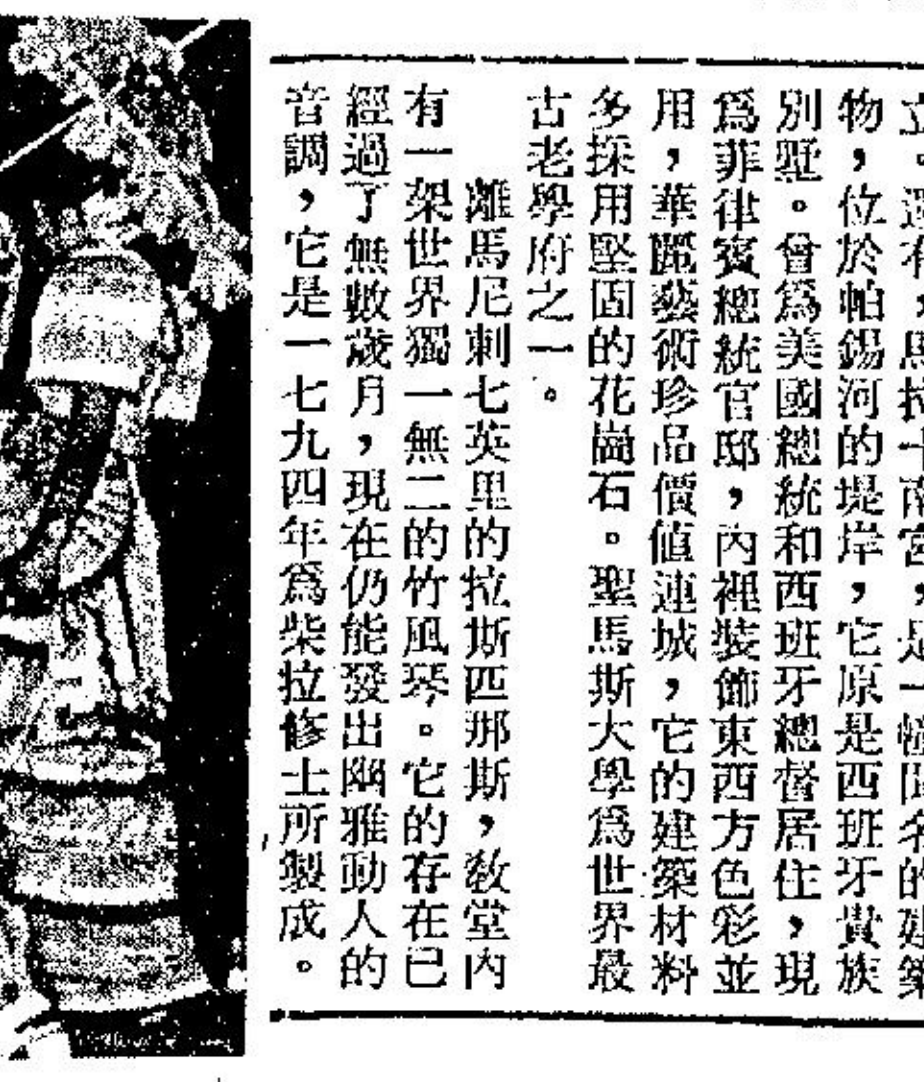 立。還有,馬拉卡南宮,是一幢聞名的建築
物,位於帕錫河的堤岸,它原是西班牙貴族
別墅。曾爲美國總統和西班牙總督居住,現
爲菲律賓總統官邸,內裡裝飾東西方色彩並
用,華麗藝術珍品價值連城,它的建築材料
多採用堅固的花崗石。聖馬斯大學爲世界最
古老學府之一。
離馬尼剌七英里的拉斯匹那斯,敎堂內
有一架世界獨一無二的竹風琴。它的存在已
經過了無數歲月,現在仍能發出幽雅動人的
音調,它是一七九四年爲柴拉修士所製成。